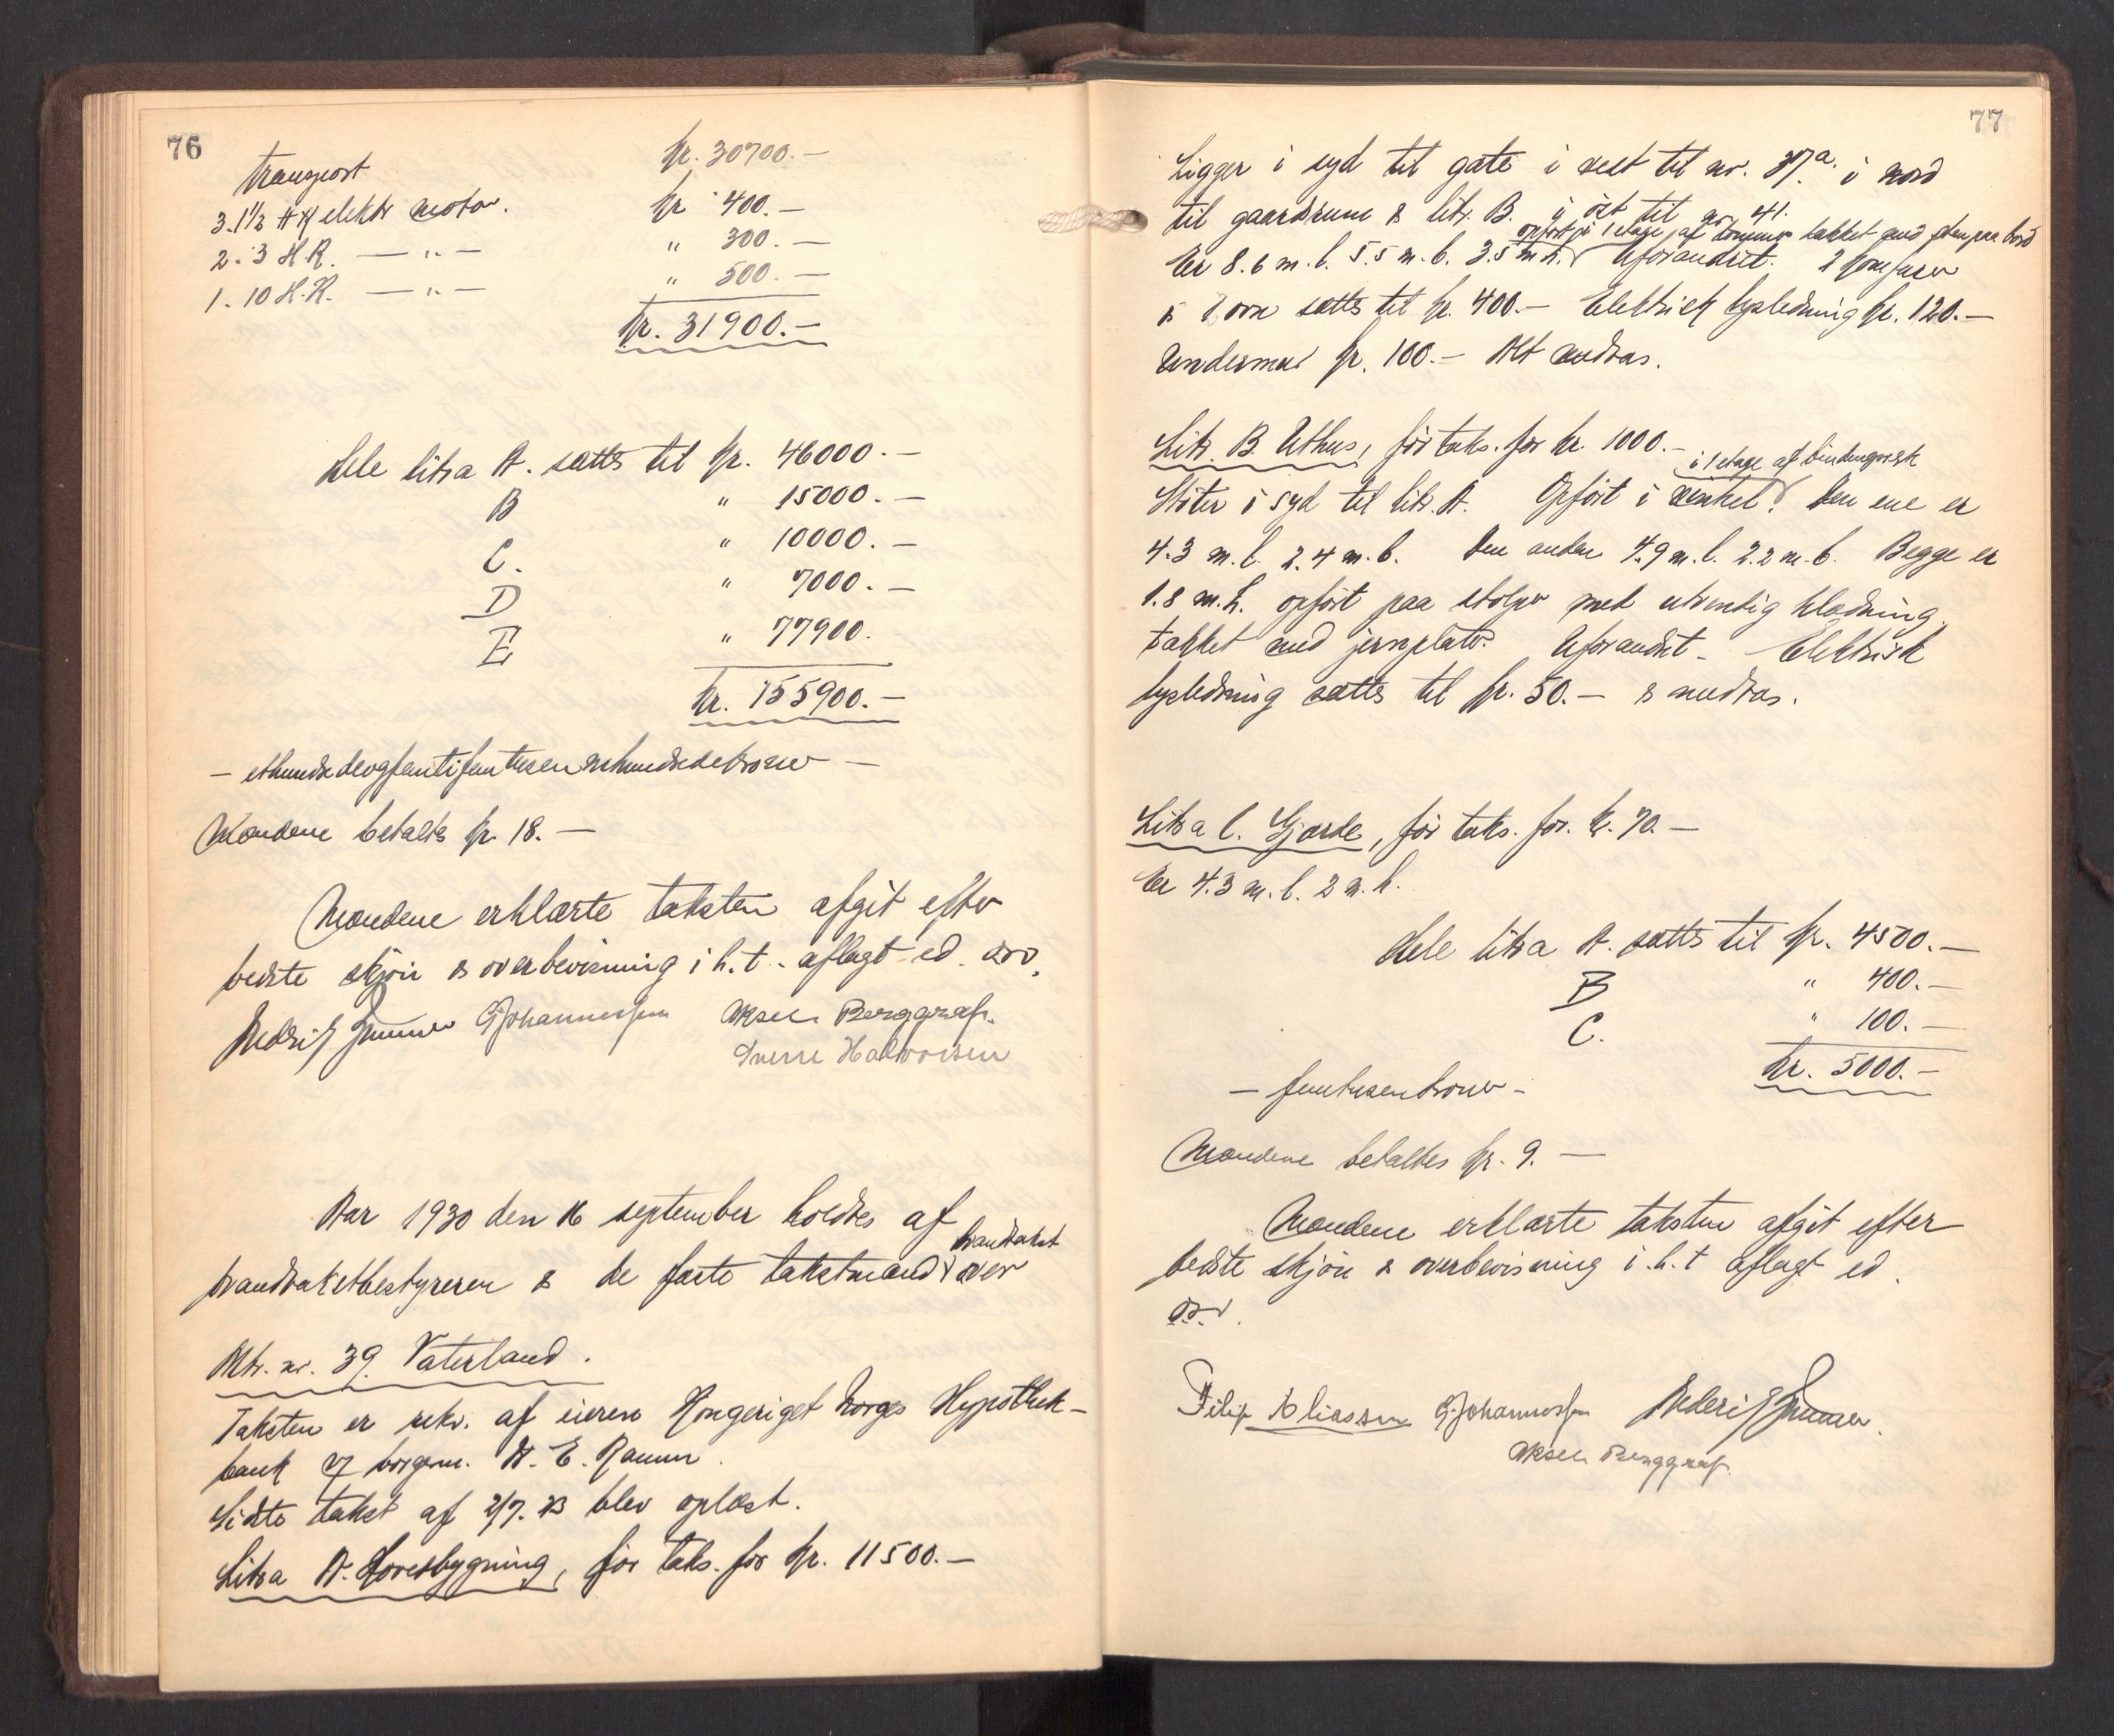 76
Transport kr. 30700.-
3. 1½ HK elektr motor. kr 400.-
2. 3 H.K. — " — " 300.-
1. 10 H.K. — " — " 500.-
kr. 31900.-
Hele litra A. sættes til kr. 46000.-
B " 15000.-
C. " 10000.-
D " 7000.-
E " 77900.
kr. 155900.-
- ethundredeogfemtifemtusennihundredekroner -
Mændene betaltes kr 18. -
Mændene erklærte taksten afgit efter
bedste skjön & overbevisning i h.t. aflagt ed.
Fredrik G Johannessen Aksel Berggraf.
Sverre Halvorsen
Aar 1930 den 16 september holdtes af
brandtakstbestyreren & de faste takstmænd brandtakst over
Mtr. nr. 39 Vaterland.
Taksten er rekv. af eieren Kongeriget Norges Hypothek-
bank v/ borgerm. A. E.
Sidste takst af 2/7. 23 blev oplæst.
Litra A. Hovedbygning, för taks. for kr. 11500.-
77
Ligger i syd til gate i vest til nr. 37a. i nord
til gaardsrum & litr. B. i öst til nr 41.
opfört i 1 etage af tömmer tækket med sten paa bord
Er 8.6 m. l. 5.5 m. b. 3.5 m h. Uforandret. 2 komfurer
& 1 ovn sættes til kr. 400.- Elektrisk lysledning kr. 120.-
Undermur kr. 100.- Alt medtas.
Litr. B. Uthus, för taks. for kr. 1000.-
i 1 etage af bindingsverk
Stöter i syd til litr. A. Opfört i vinkel. Den ene er
4.3 m. l. 2.4 m. b. Den anden 4.9 m. l. 2.2 m. b. Begge er
1.8 m. h. opfört paa stolper med utvendig klædning.
tækket med jernplater. Uforandret - Elektrisk
lysledning sættes til kr. 50.- & medtas.
Litra C. Gjærde, för taks. for. kr. 70.-
Er 4.3 m. l. 2 m. h.
Hele litra A. sættes til kr. 4500.-
B " 400.-
C. " 100.-
kr. 5000.-
- femtusenkroner -
Mændene betaltes kr. 9. -
Mændene erklærte taksten afgit efter
bedste skjön & overbevisning i. h. t aflagt ed.
Filip Eliassen G Johannessen Fredrik
Aksel Berggraf.